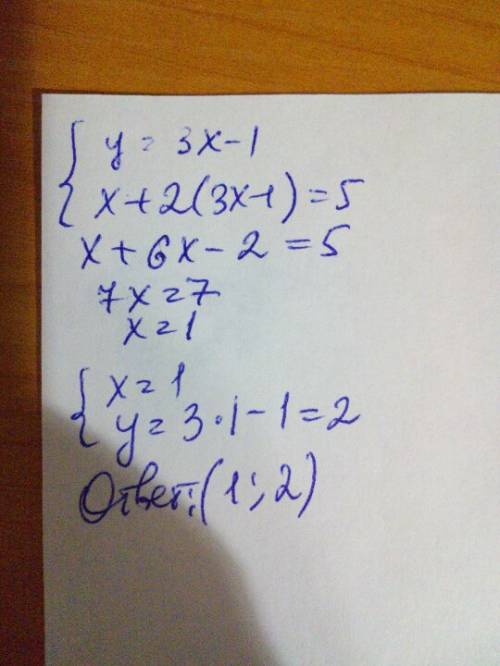 { y = 3x-1
x+2(3x-1)=5
x+6x-2=5
7x=7
x=1
{ x=1
y=3·1-1=2
Ответ:(1;2)